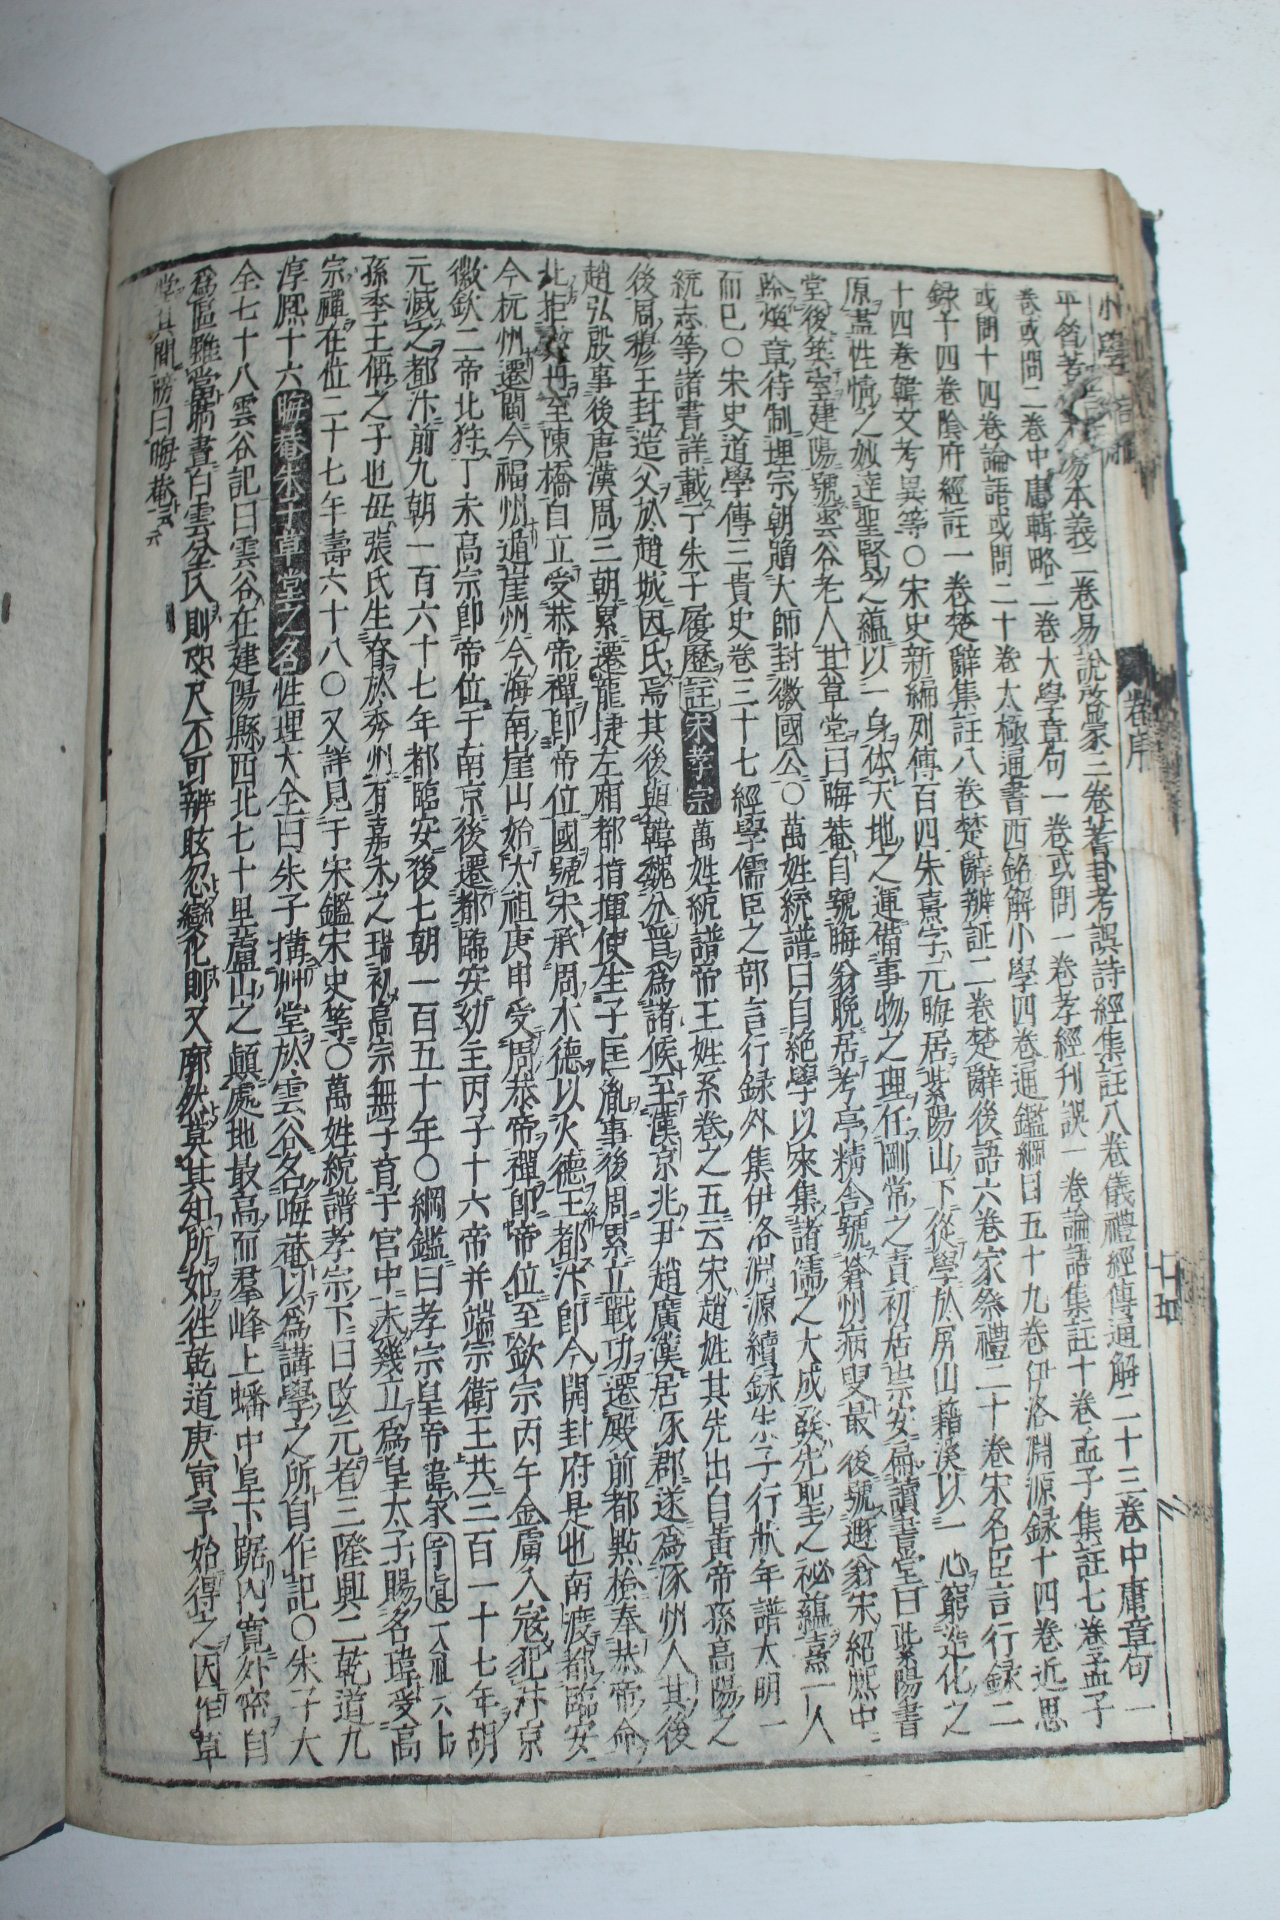 平 著 易本義二卷易說啓蒙三卷蓍卦考誤詩經集註八卷儀禮經傳通解二十三卷中庸章句一
卷或問二卷中庸輯略二卷大學章句一卷或問一卷孝經刊誤一卷論語集註十卷孟子集註七卷孟子
或問十四卷論語或問二十卷太極通書西銘解小學四卷通鑑綱目五十九卷伊洛淵源録十四卷近思
録十四卷陰府經註一卷楚辭集註八卷楚辭辨証二卷楚辭後語六卷家祭禮二十卷宋名臣言行録二
十四卷韓文考異等○宋史新編列傳百四朱熹字元晦居紫陽山下從學於屏山籍溪以一心窮造化之
原盖性情之妙達聖賢之蘊以一身体天地之運備事物之理任剛常之責初居崇安扁讀書堂曰紫陽書
堂後築室建陽號雲谷老人其草堂曰晦菴自號晦翁晚居考亭精舍號蒼州病叟最後號遯翁宋紹熙中
除煥章待制理宗朝贈大師封徽國公○萬姓統譜曰自絕學以來集諸儒之大成發先聖之祕蘊熹一人
而已○宋史道學傳三貴史卷三十七經學儒臣之部言行録外集伊洛淵源續録朱子行狀年譜大明一
統志等諸書詳載于朱子履歷註宋孝宗萬姓統譜帝王姓系卷之五云宋趙姓其先出自黃帝孫高陽之
後周穆王封造父於趙城因氏焉其後與韓魏分晋爲諸候至漢京兆尹趙廣漢居涿郡遂爲涿州人其後
趙弘殷事後唐漢周三朝累遷龍捷左廂都指揮使生子匡胤事後周累立戰功遷殿前都點檢奉恭帝命
北拒 丹至陳橋自立受恭帝禪卽帝位國號宋承周木德以火德王都汴卽今開封府是也南渡都臨安
今杭州遷閩今福州遁崖州今海南崖山始太祖庚申受周恭帝禪卽帝位至欽宗丙午金虜入寇犯汴京
徽欽二帝北狩丁未高宗卽帝位于南京後遷都臨安幼主丙子十六帝并端宗衛王共三百一十七年胡
元滅之都汴前九朝一百六十七年都臨安後七朝一百五十年○綱鑑曰孝宗皇帝諱昚 太祖六世
孫秀王偁之子也母張氏生昚於秀州有嘉禾之瑞初高宗無子育于宮中未幾立爲皇太子賜名瑋受高
宗禪在位二十七年壽六十八○又詳見于宋鑑宋史等○萬姓統譜孝宗下曰改元者三隆興二乾道九
淳熙十六晦菴朱 草堂之名性理大全曰朱子搆艸堂於雲谷名晦菴以爲講學之所自作記○朱子大
全七十八雲谷記曰雲谷在建陽縣西北七十里蘆山之顛處地最高而羣峰上蟠中阜下踞內寬外密自
爲區雖當晴晝白雲坌入則咫尺不可辨眩忽變化則又廓然莫其知所如徃乾道庚寅予始得之因作草
堂其間牓曰晦菴云々
卷序
十五